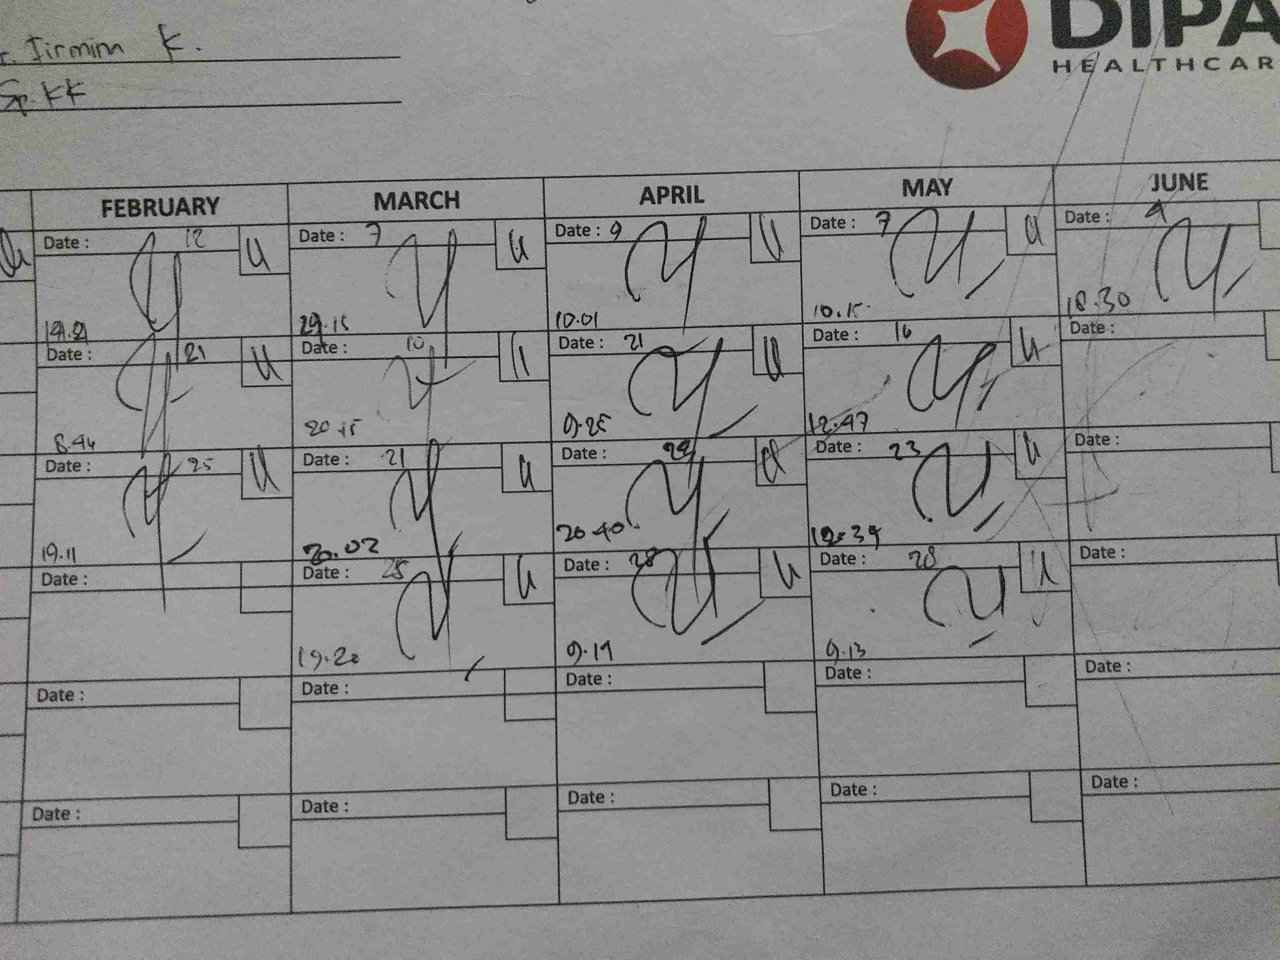 Jirmim K.
Sp.KK
DIPA
HEALTHCAR
FEBRUARY MARCH APRIL MAY JUNE
Date : 12 Date : 7 Date : 9 Date : 7 Date : 4
U u U u
29.15 10.01 10.15 18.30
Date : 21 Date : 10 Date : 21 Date : 16 Date :
U U U u
8.44 20.15 9.25 12.47
Date : 25 Date : 21 Date : 24 Date : 23 Date :
U u U u
19.11 20.02 20.40 19.39
Date : Date : 25 Date : 28 Date : 28 Date :
u u u
19.20 9.19 9.13
Date : Date : Date : Date : Date :
Date : Date : Date : Date : Date :